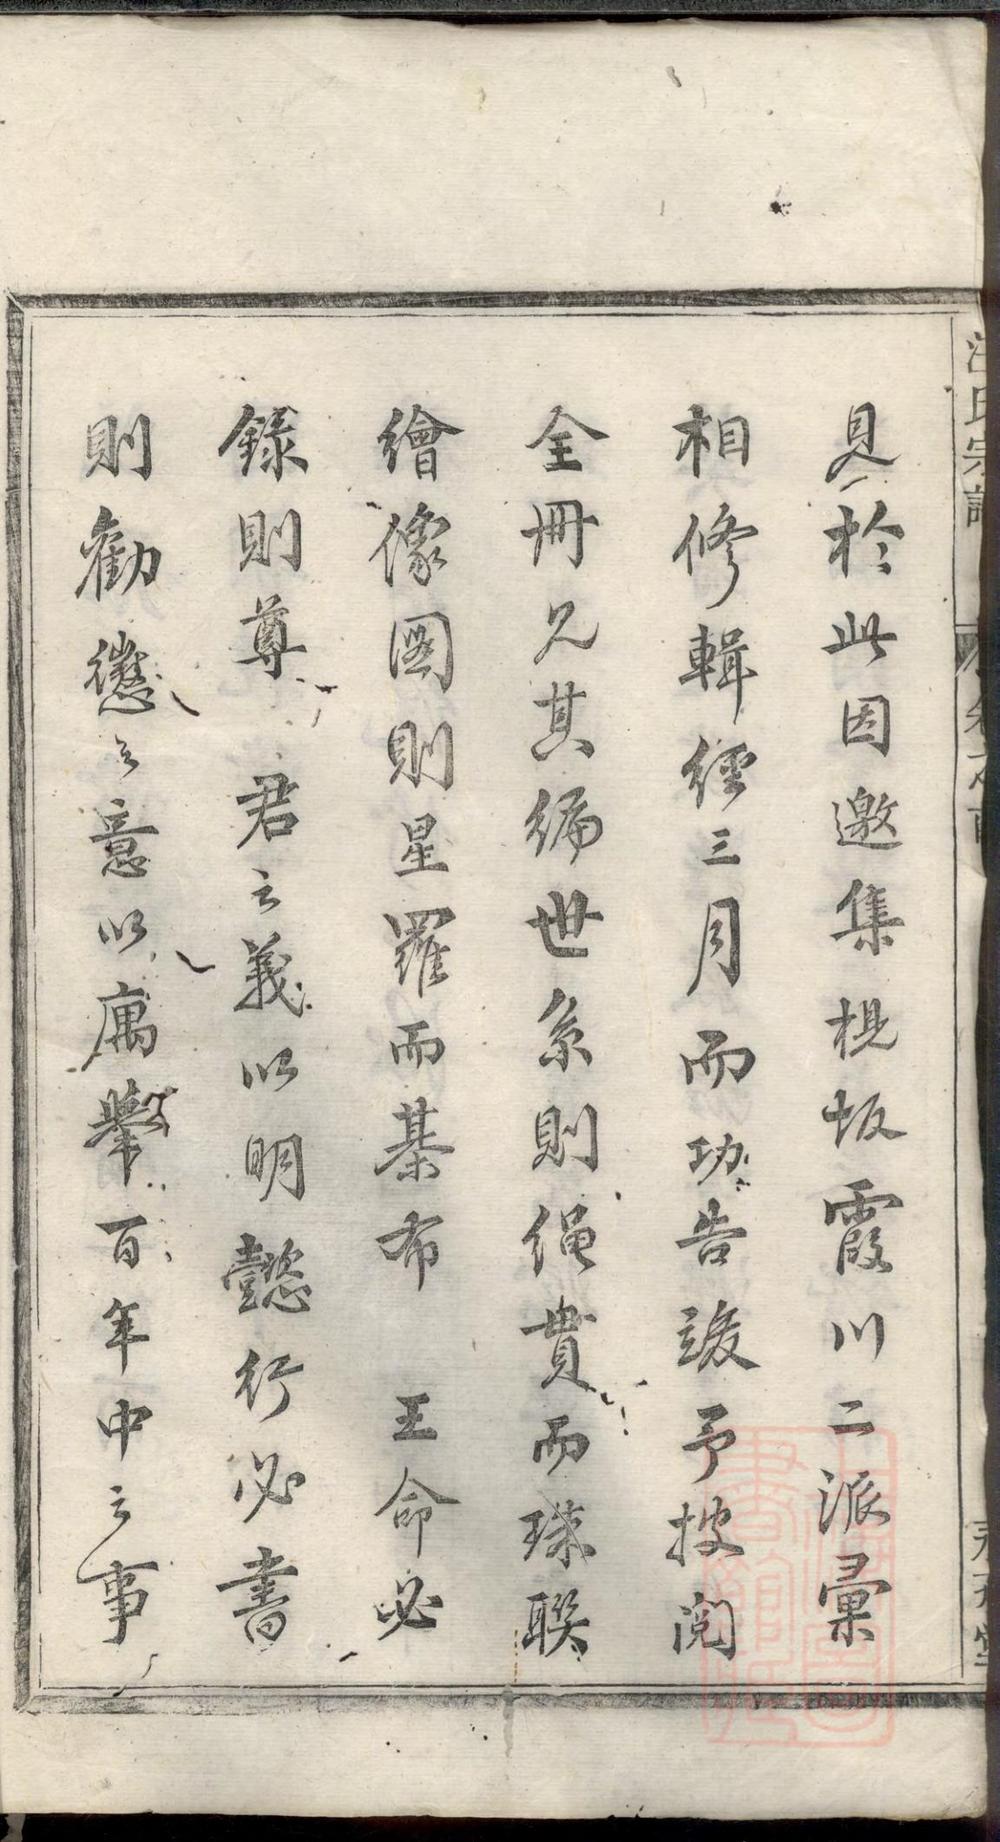 見於此因邀集梘坂霞川二派彙
相修輯經三月而功告竣予披閱
全冊見其編世系則繩貫而珠聯
繪像圖則星羅而棊布　王命必
錄則尊　君之義以明懿行必書
則勸懲之意以寓舉百年中之事
汪氏宗譜